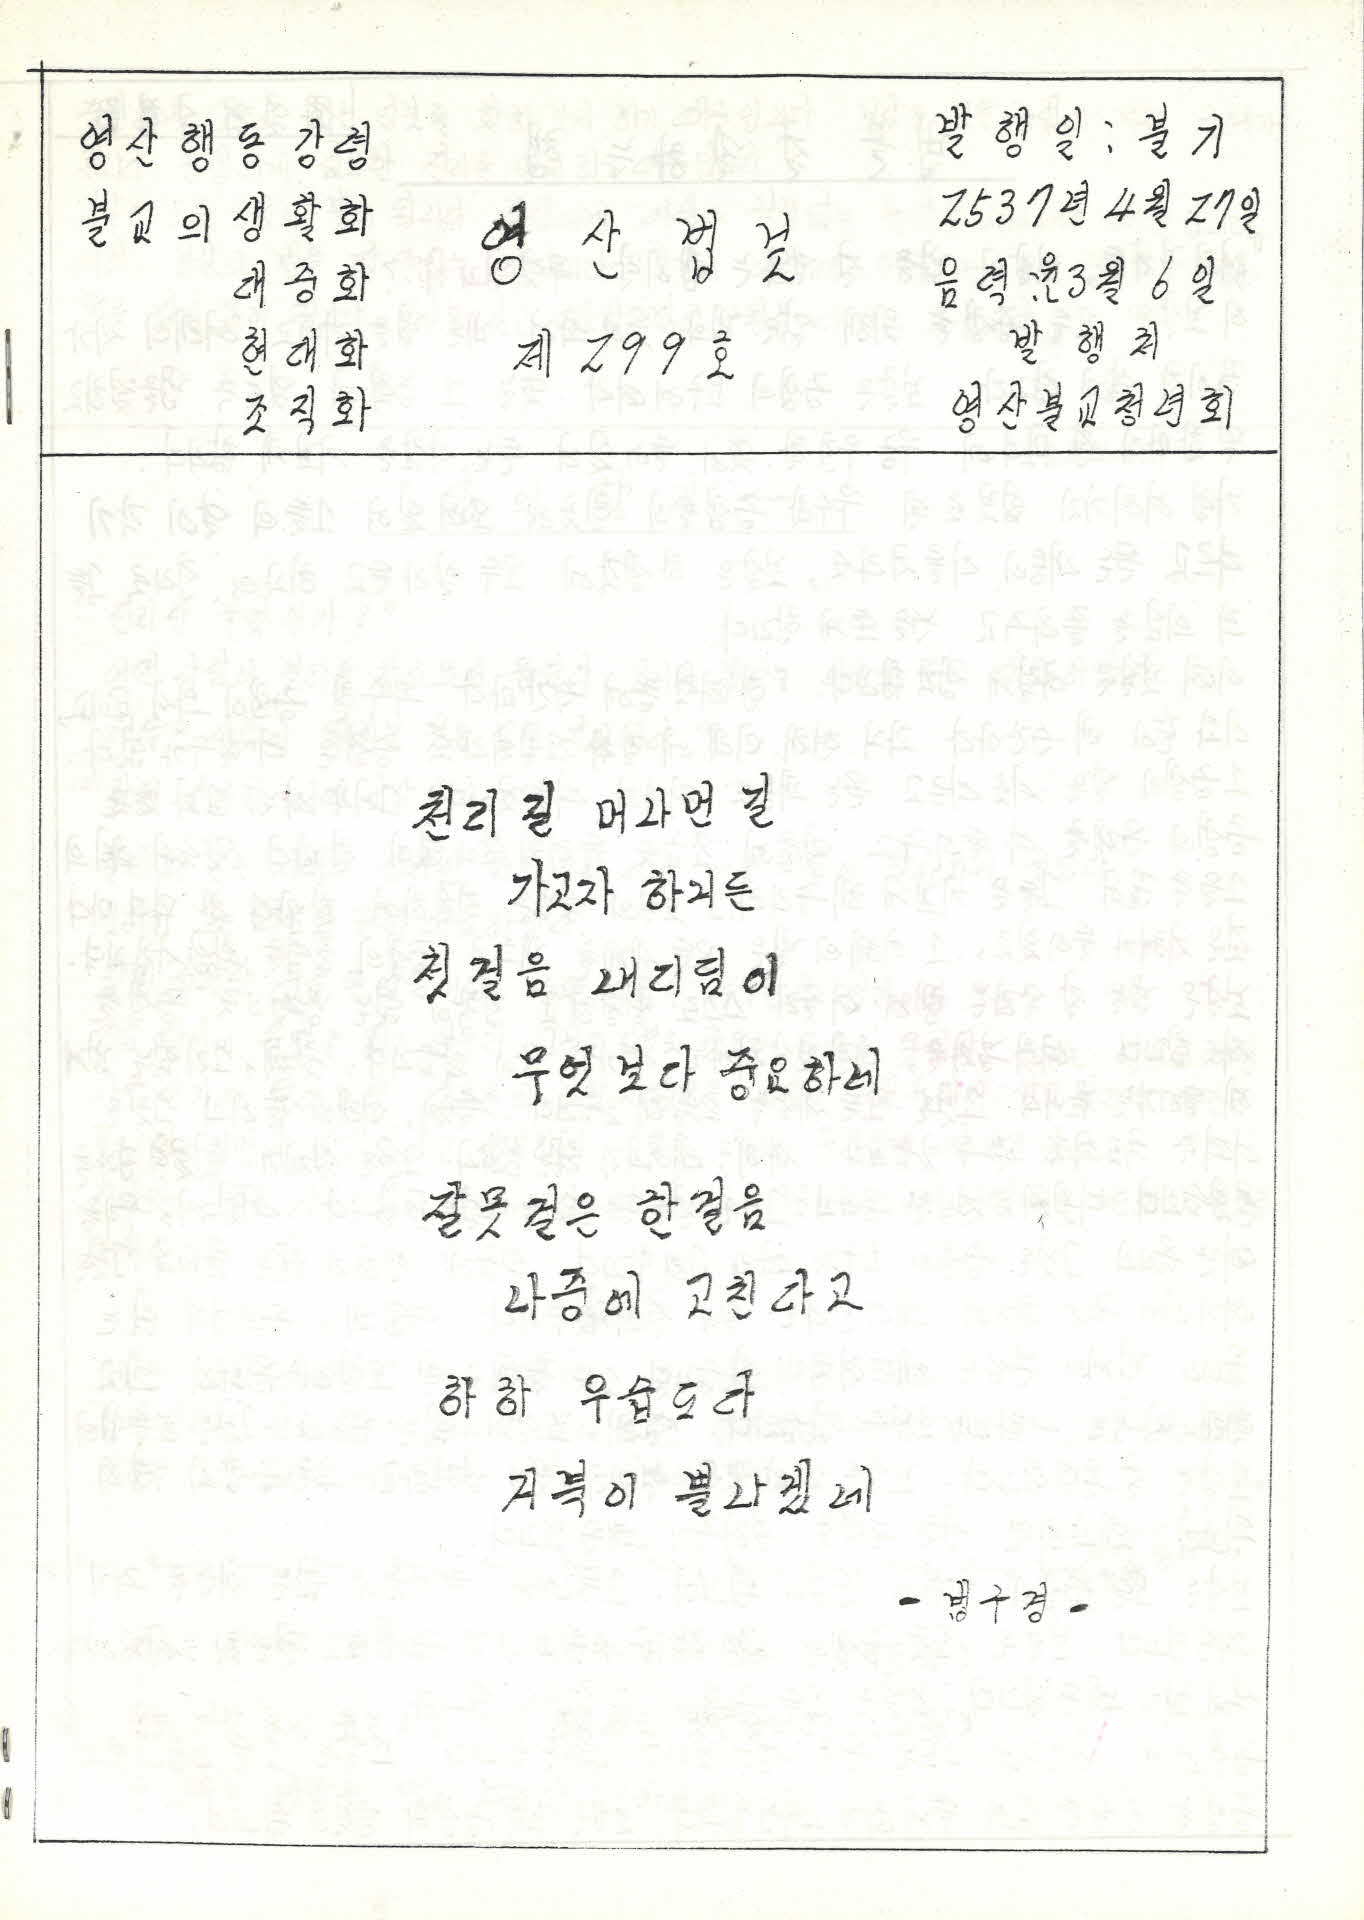 영산행동강령
불교의 생활화
대중화
현대화
조직화
영산법벗
제 299호
발행일 : 불기
2537년 4월 27일
음력 : 윤3월 6일
발행처
영산불교청년회
천리길 머나먼길
가고자 하거든
첫걸음 내디딤이
무엇보다 중요하네
잘못걸은 한걸음
나중에 고친다고
하하 우습도다
거북이 뿔나겠네
- 법구경 -